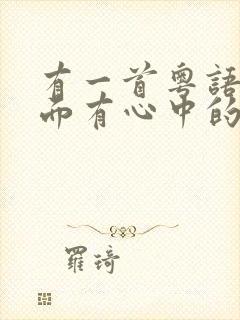 有一首粵語
而有心中的
羅琦